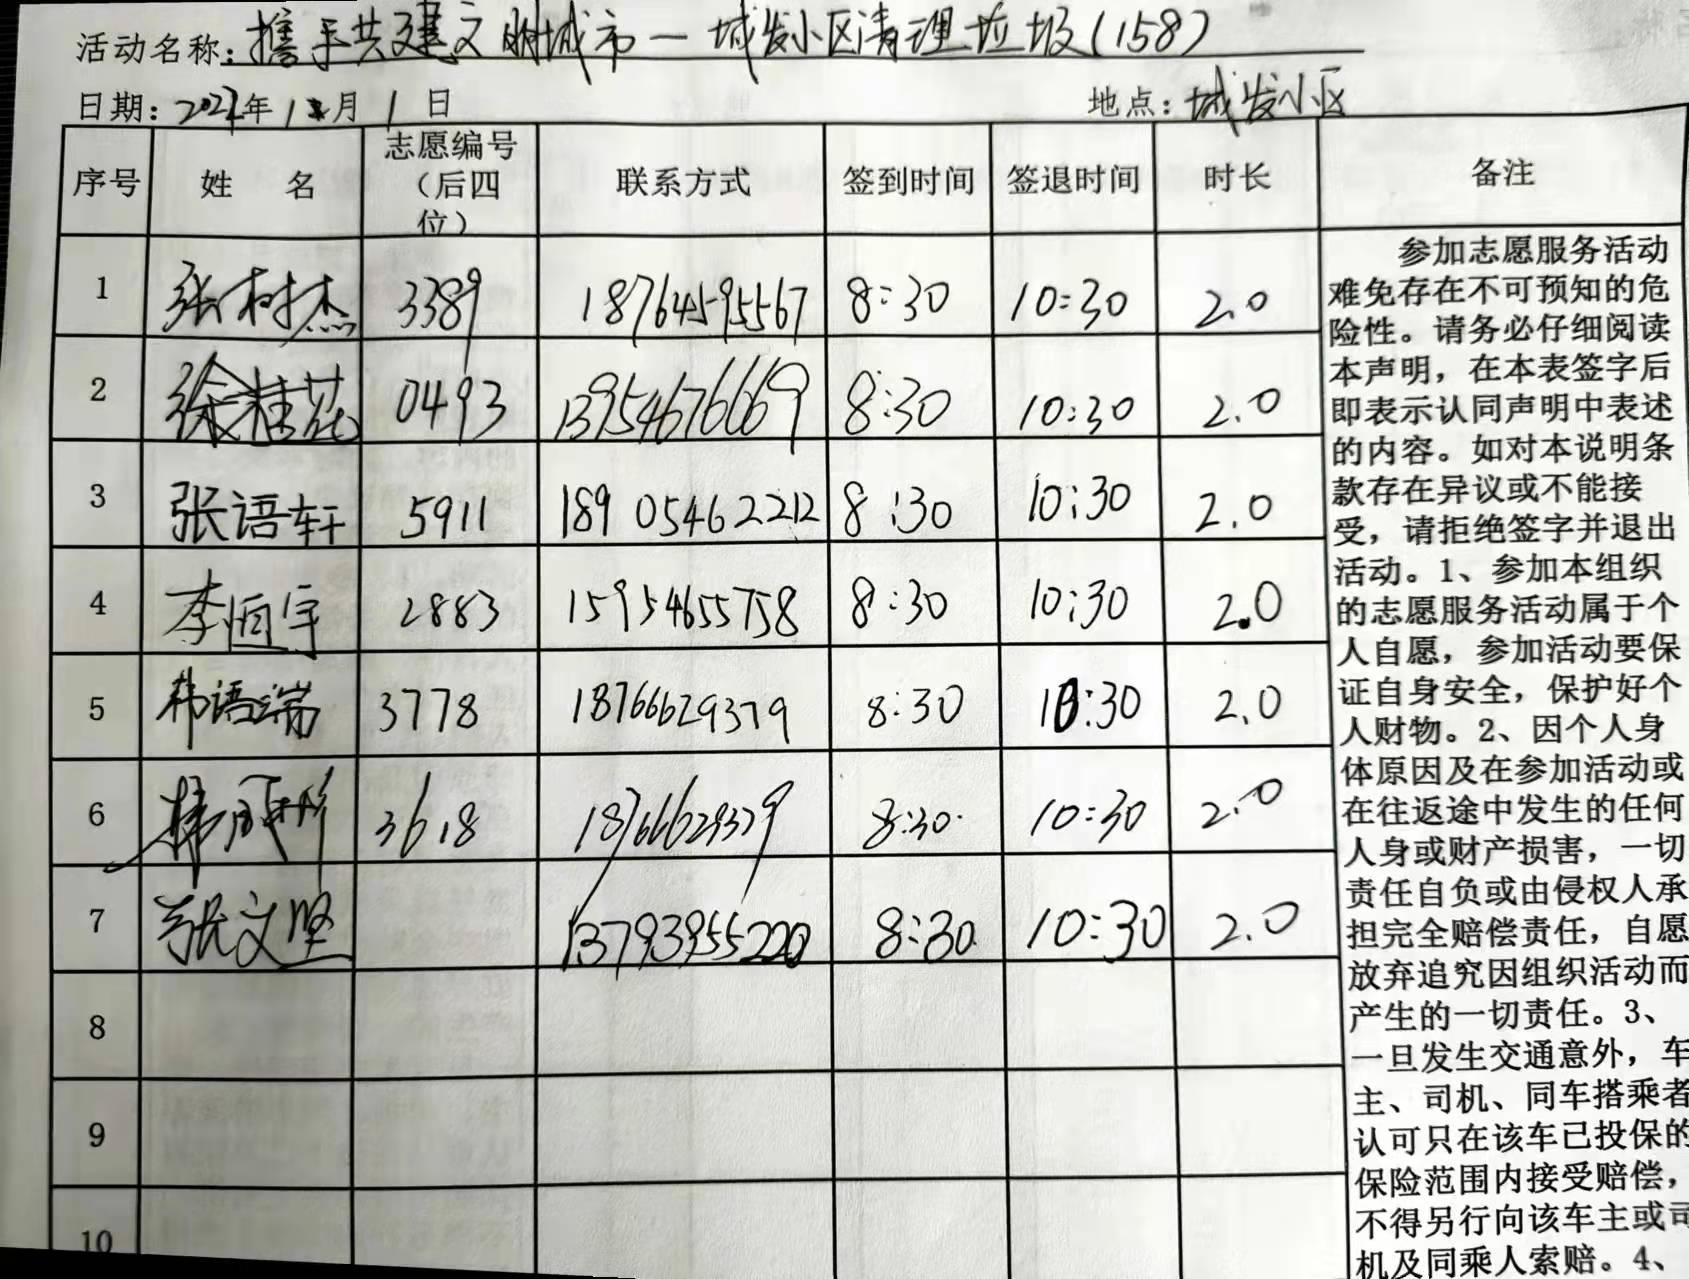 活动名称：携手共建文明城市—城发小区清理垃圾（158）
日期：年1月1日 地点：城发小区
序号 姓 名 志愿编号（后四位） 联系方式 签到时间 签退时间 时长 备注
1 张树杰 3389 18764595567 8:30 10:30 2.0
2 徐桂花 0493 13954676669 8:30 10:30 2.0
3 张语轩 5911 18905462212 8:30 10:30 2.0
4 李恒宇 2883 15954655758 8:30 10:30 2.0
5 韩语端 3778 18766629379 8:30 10:30 2.0
6 3618 18766629379 8:30 10:30 2.0
7 张文坚 13793955220 8:30 10:30 2.0
8
9
10
参加志愿服务活动
难免存在不可预知的危
险性。请务必仔细阅读
本声明，在本表签字后
即表示认同声明中表述
的内容。如对本说明条
款存在异议或不能接
受，请拒绝签字并退出
活动。1、参加本组织
的志愿服务活动属于个
人自愿，参加活动要保
证自身安全，保护好个
人财物。2、因个人身
体原因及在参加活动或
在往返途中发生的任何
人身或财产损害，一切
责任自负或由侵权人承
担完全赔偿责任，自愿
放弃追究因组织活动而
产生的一切责任。3、
一旦发生交通意外，车
主、司机、同车搭乘者
认可只在该车已投保的
保险范围内接受赔偿，
不得另行向该车主或司
机及同乘人索赔。4、